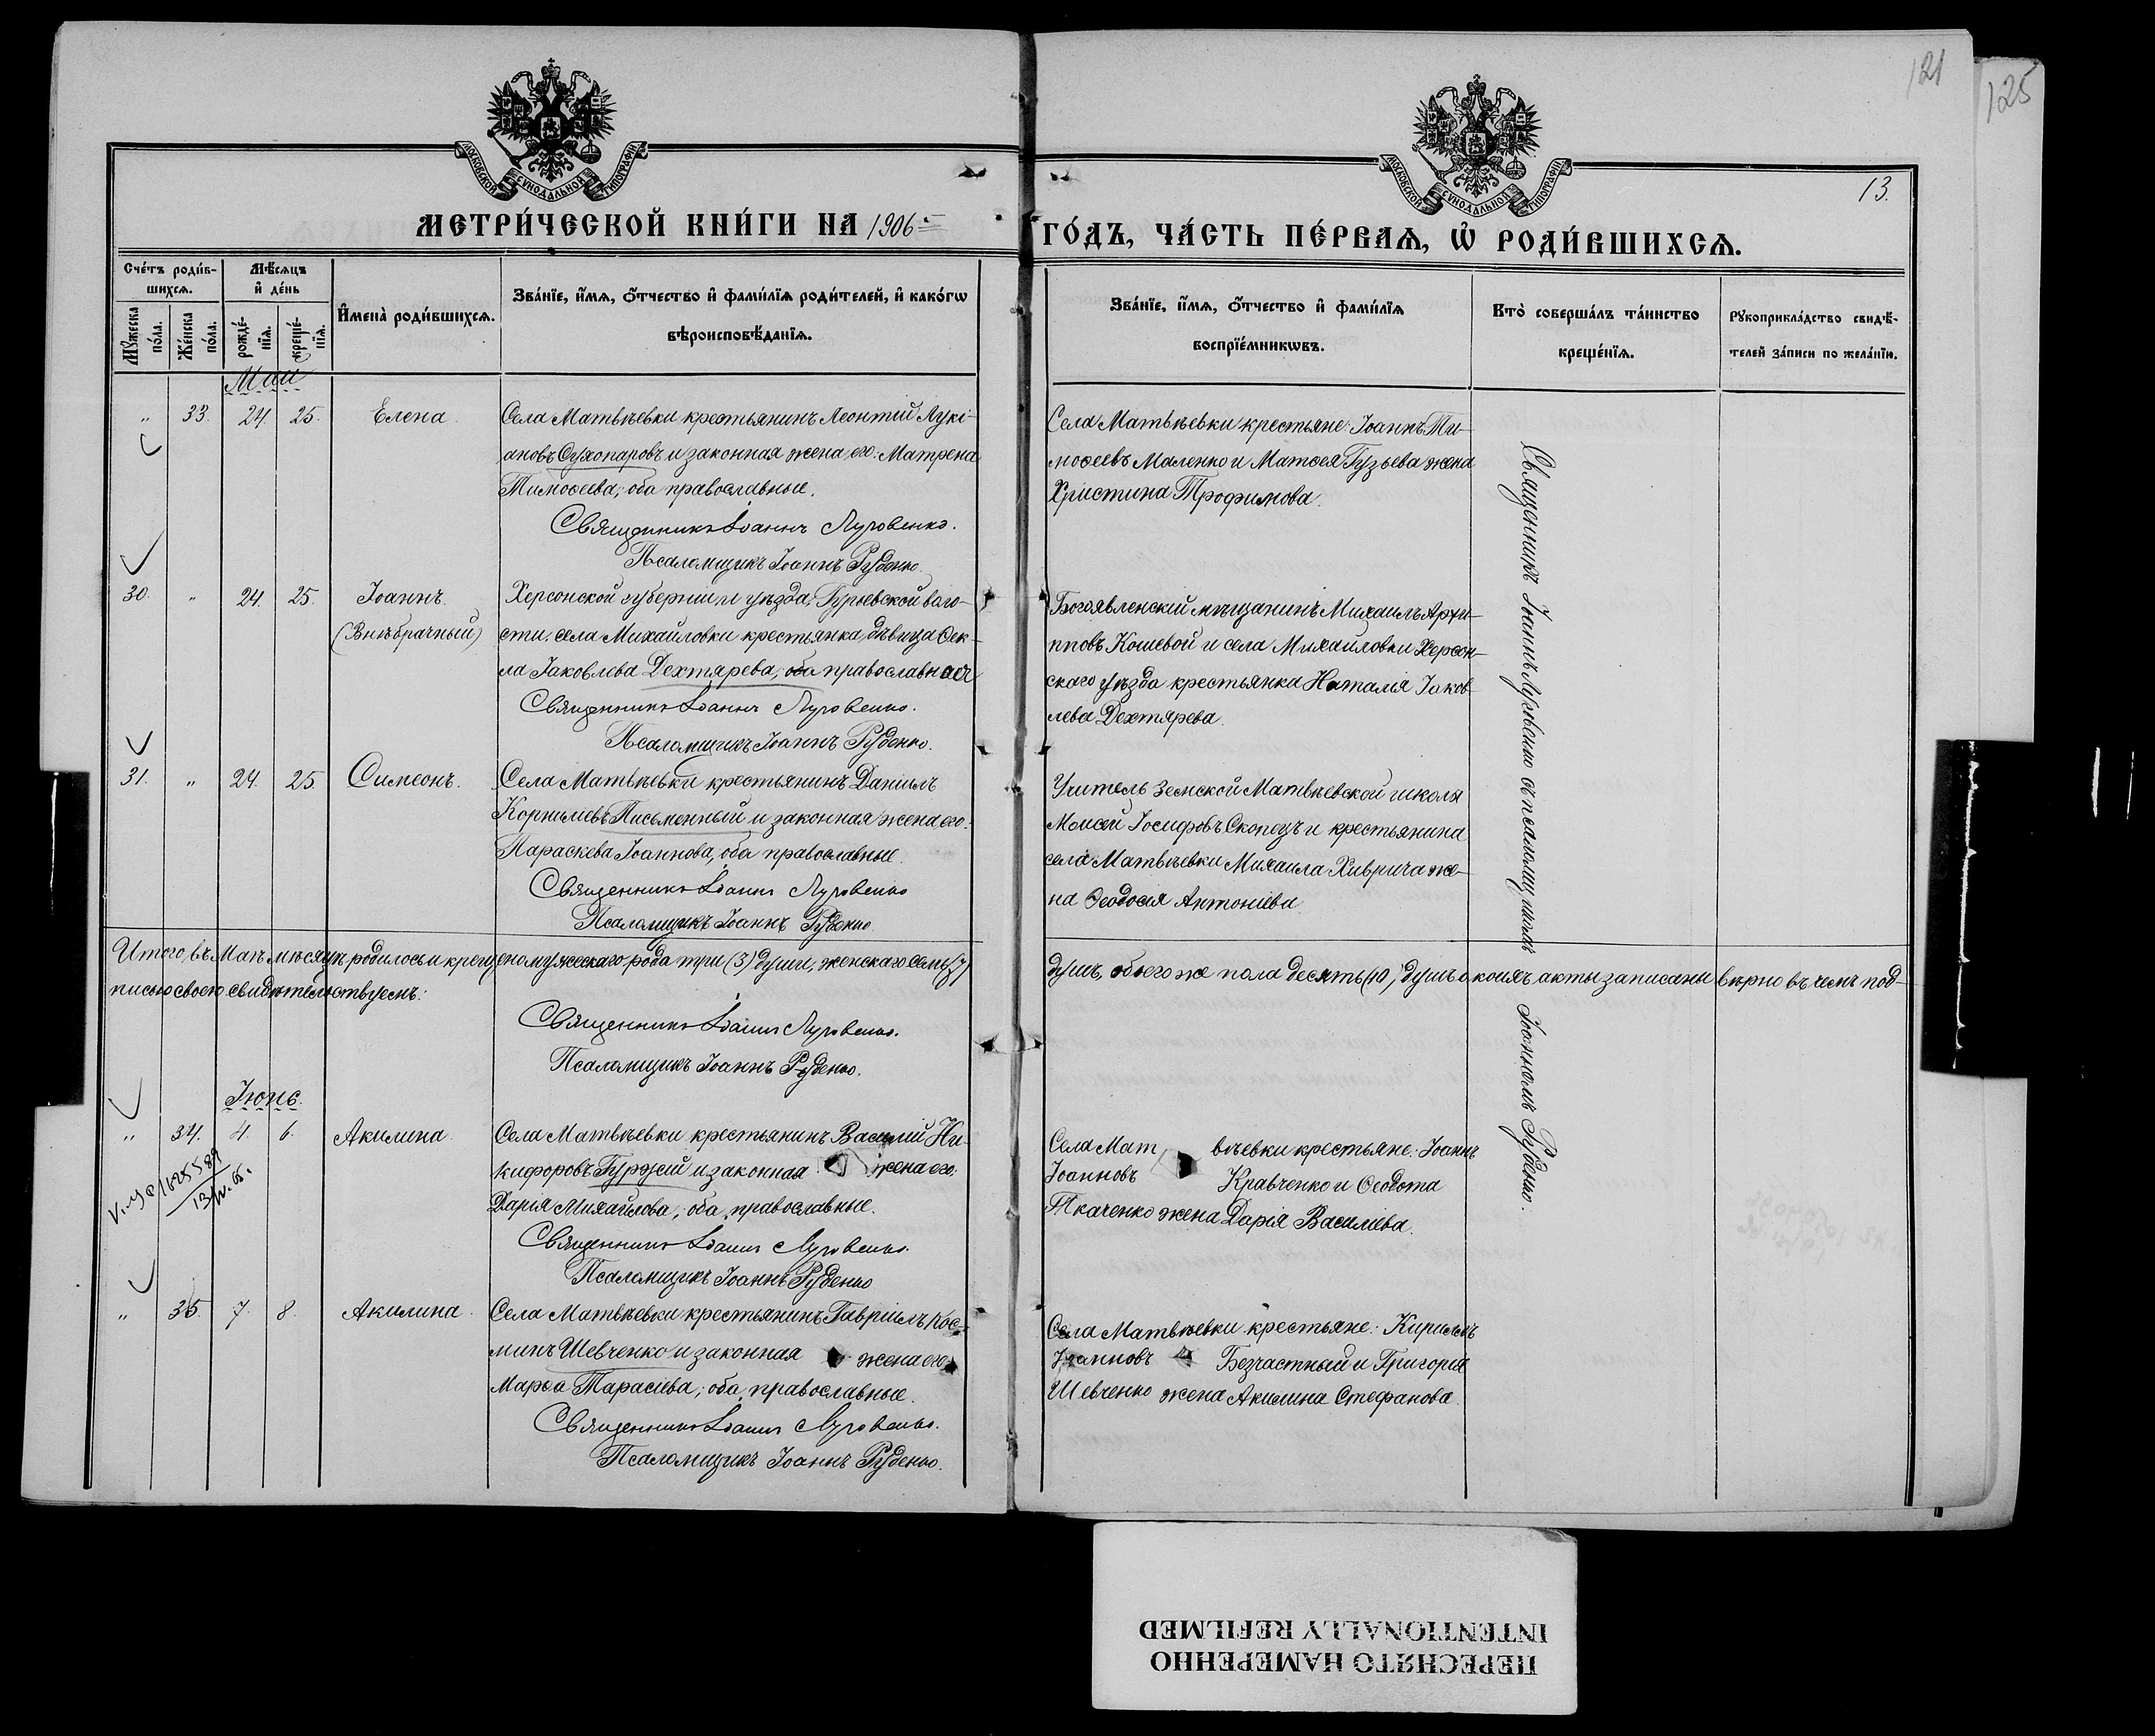 121
125
13.
МОСКОВСКОЙ СѴНОДАЛЬНОЙ ТИПОГРАФІИ
МОСКОВСКОЙ СѴНОДАЛЬНОЙ ТИПОГРАФІИ
МЕТРИ́ЧЕСКОЙ КНИ́ГИ НА 1906
ГО́ДЪ, ЧА́СТЬ ПЕ́РВАѦ, Ѡ҆ РОДИ́ВШИХСѦ.
Сче́тъ роди́в-
шихсѧ.
Мѣ́сѧцъ
и҆ де́нь
Мꙋ́жеска по́ла.
Же́нска по́ла.
рожде́-
нїѧ.
креще́-
нїѧ.
И҆мена̀ роди́вшихсѧ.
Зва́нїе, и҆́мѧ, ѻ҆́тчество и҆ фами́лїѧ роди́телей, и҆ како́гѡ
вѣроисповѣ́данїѧ.
Зва́нїе, и҆́мѧ, ѻ҆́тчество и҆ фами́лїѧ
воспрїе́мникѡвъ.
Кто̀ соверша́лъ та́инство
креще́нїѧ.
Рꙋкоприкла́дство свидѣ́-
телей за́писи по жела́нїю.
Маи
" 33. 24. 25. Елена.
Села Матвѣевки крестьянинъ Леонтій Лукі-
ановъ Сухопаровъ и законная жена его: Матрена
Тимоѳеева; оба православные.
Священникъ Іоаннъ Луговенко.
Псаломщикъ Іоаннъ Руденко.
Села Матвѣевки крестьяне: Іоаннъ Ти-
моѳеевъ Маленко и Матѳея Гузьева жена
Христина Трофимова.
30. " 24. 25. Іоаннъ.
(Внѣбрачный)
Херсонской губерніи и уѣзда, Гурьевской воло-
сти, села Михайловки крестьянка, дѣвица Ѳек-
ла Іаковлева Дехтярева, оба православная
Священникъ Іоаннъ Луговенко.
Псаломщикъ Іоаннъ Руденко.
Богоявленскій мѣщанинъ Михаилъ Архи-
пповъ Кошевой и села Михайловки Херсон-
скаго уѣзда крестьянка Наталія Іаков-
лева Дехтярева.
31. " 24. 25. Симеонъ.
Села Матвѣевки крестьянинъ Даніилъ
Корниліевъ Письменный и законная жена его:
Параскева Іоаннова, оба православные.
Священникъ Іоаннъ Луговенко
Псаломщикъ Іоаннъ Руденко
Учитель Земской Матвѣевской школы
Моисей Іосифовъ Скопецъ и крестьянина
села Матвѣевки Михаила Хиврича же-
на Ѳеодосія Антоніева.
Священникъ Іоаннъ Луговенко съ псаломщикомъ Іоанномъ Руденко.
Итого, въ Маѣ мѣсяцѣ родилось и крещено мужескаго рода три (3) души, женскаго семь (7) душъ, обоего же пола десять (10) душъ о коихъ акты записаны вѣрно въ чемъ под-
писью своею свидѣтельствуемъ:
Священникъ Іоаннъ Луговенко.
Псаломщикъ Іоаннъ Руденко.
Іюнь.
" 34. 4. 6. Акилина.
Села Матвѣевки крестьянинъ Василій Ни-
кифоровъ Гуржій и законная жена его:
Дарія Михайлова; оба православные.
Священникъ Іоаннъ Луговенко.
Псаломщикъ Іоаннъ Руденко
Села Матвѣевки крестьяне: Іоаннъ
Іоанновъ Кравченко и Ѳеодота
Ткаченко жена Дарія Василіева.
" 35. 7. 8. Акилина.
Села Матвѣевки крестьянинъ Гавріилъ Кос-
минъ Шевченко и законная жена его:
Марѳа Тарасіева; оба православные.
Священникъ Іоаннъ Луговенко.
Псаломщикъ Іоаннъ Руденко.
Села Матвѣевки крестьяне: Кириллъ
Іоанновъ Безчастный и Григорія
Шевченко жена Акилина Стефанова.
ПЕРЕСНЯТО НАМЕРЕННО
INTENTIONALLY REFILMED